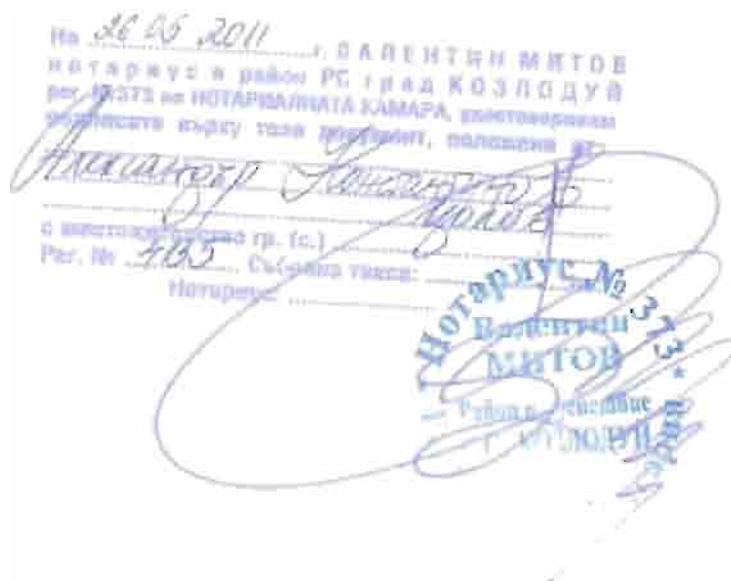 На 26 05 2011 г. ВАЛЕНТИН МИТОВ
нотариус в район РС град КОЗЛОДУЙ
рег. № 373 на НОТАРИАЛНАТА КАМАРА, удостоверявам
подписите върху този документ, положени от:
Александър
с местожителство гр. (с.)
Рег. № Събрана такса:
Нотариус:
Нотариус № 373 *
Валентин
МИТОВ
Район действие
КОЗЛОДУЙ